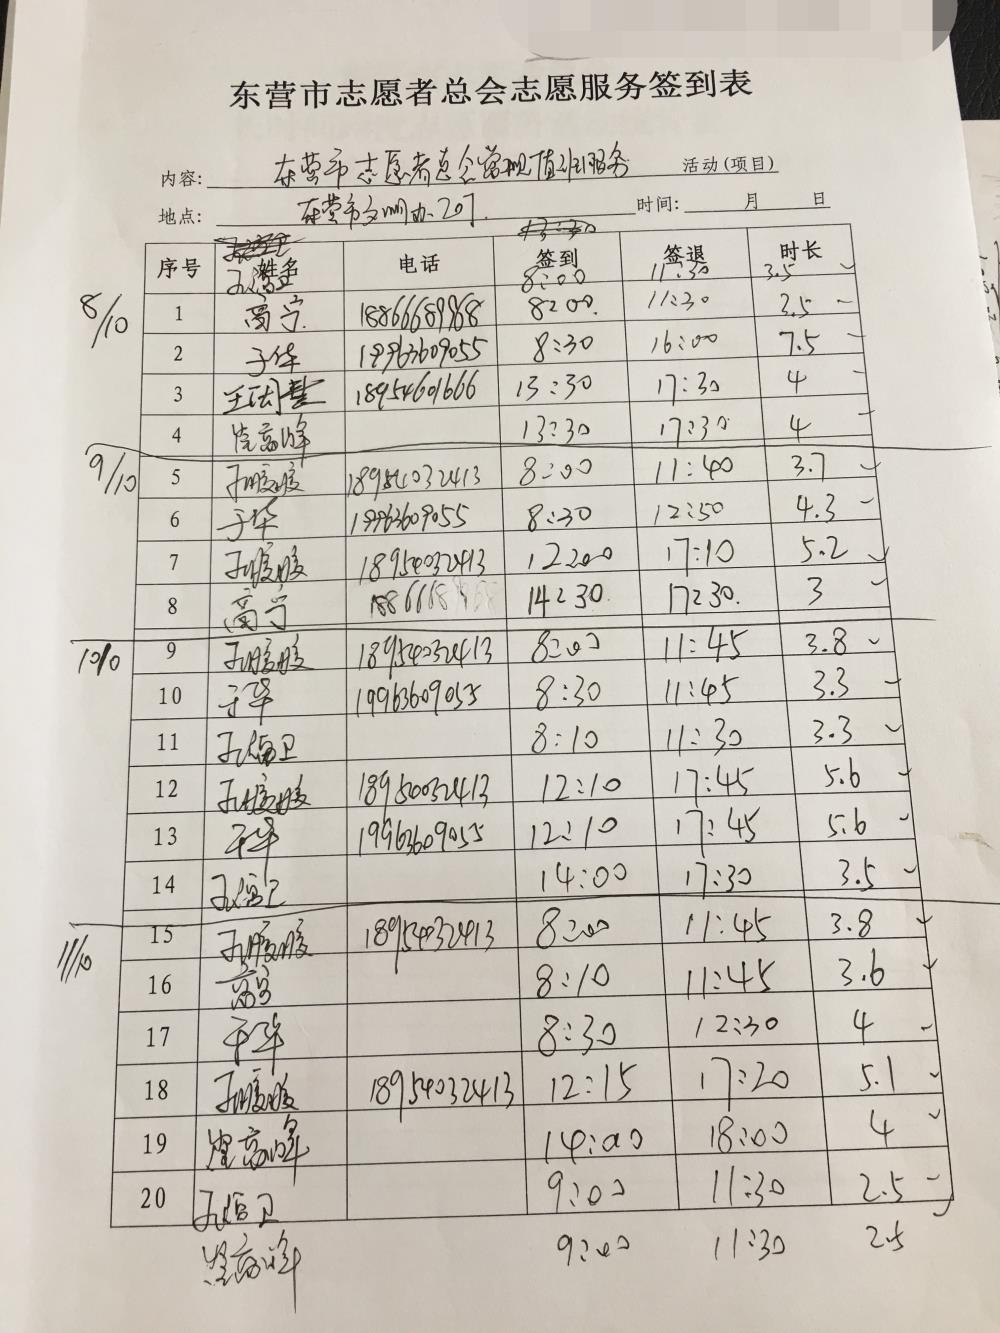 东营市志愿者总会志愿服务签到表
内容: 东营市志愿者总会常规值班服务 活动(项目)
地点: 东营市文明办207 时间: 月 日
序号 姓名 电话 签到 签退 时长
8:00 11:30 3.5
8/10
1 高宁 18866689968 8:00 11:30 3.5
2 于华 19963609055 8:30 16:00 7.5
3 18954601666 13:30 17:30 4
4 13:30 17:30 4
9/10
5 孙胶胶 189540032413 8:00 11:40 3.7
6 于华 19963609055 8:30 12:50 4.3
7 孙胶胶 18954032413 12:00 17:10 5.2
8 高宁 14:30 17:30 3
10/10
9 孙胶胶 189540032413 8:00 11:45 3.8
10 于华 19963609055 8:30 11:45 3.3
11 8:10 11:30 3.3
12 孙胶胶 189500032413 12:10 17:45 5.6
13 于华 19963609055 12:10 17:45 5.6
14 14:00 17:30 3.5
11/10
15 孙胶胶 18954032413 8:00 11:45 3.8
16 高宁 8:10 11:45 3.6
17 于华 8:30 12:30 4
18 孙胶胶 18954032413 12:15 17:20 5.1
19 14:00 18:00 4
20 9:00 11:30 2.5
9:00 11:30 2.5